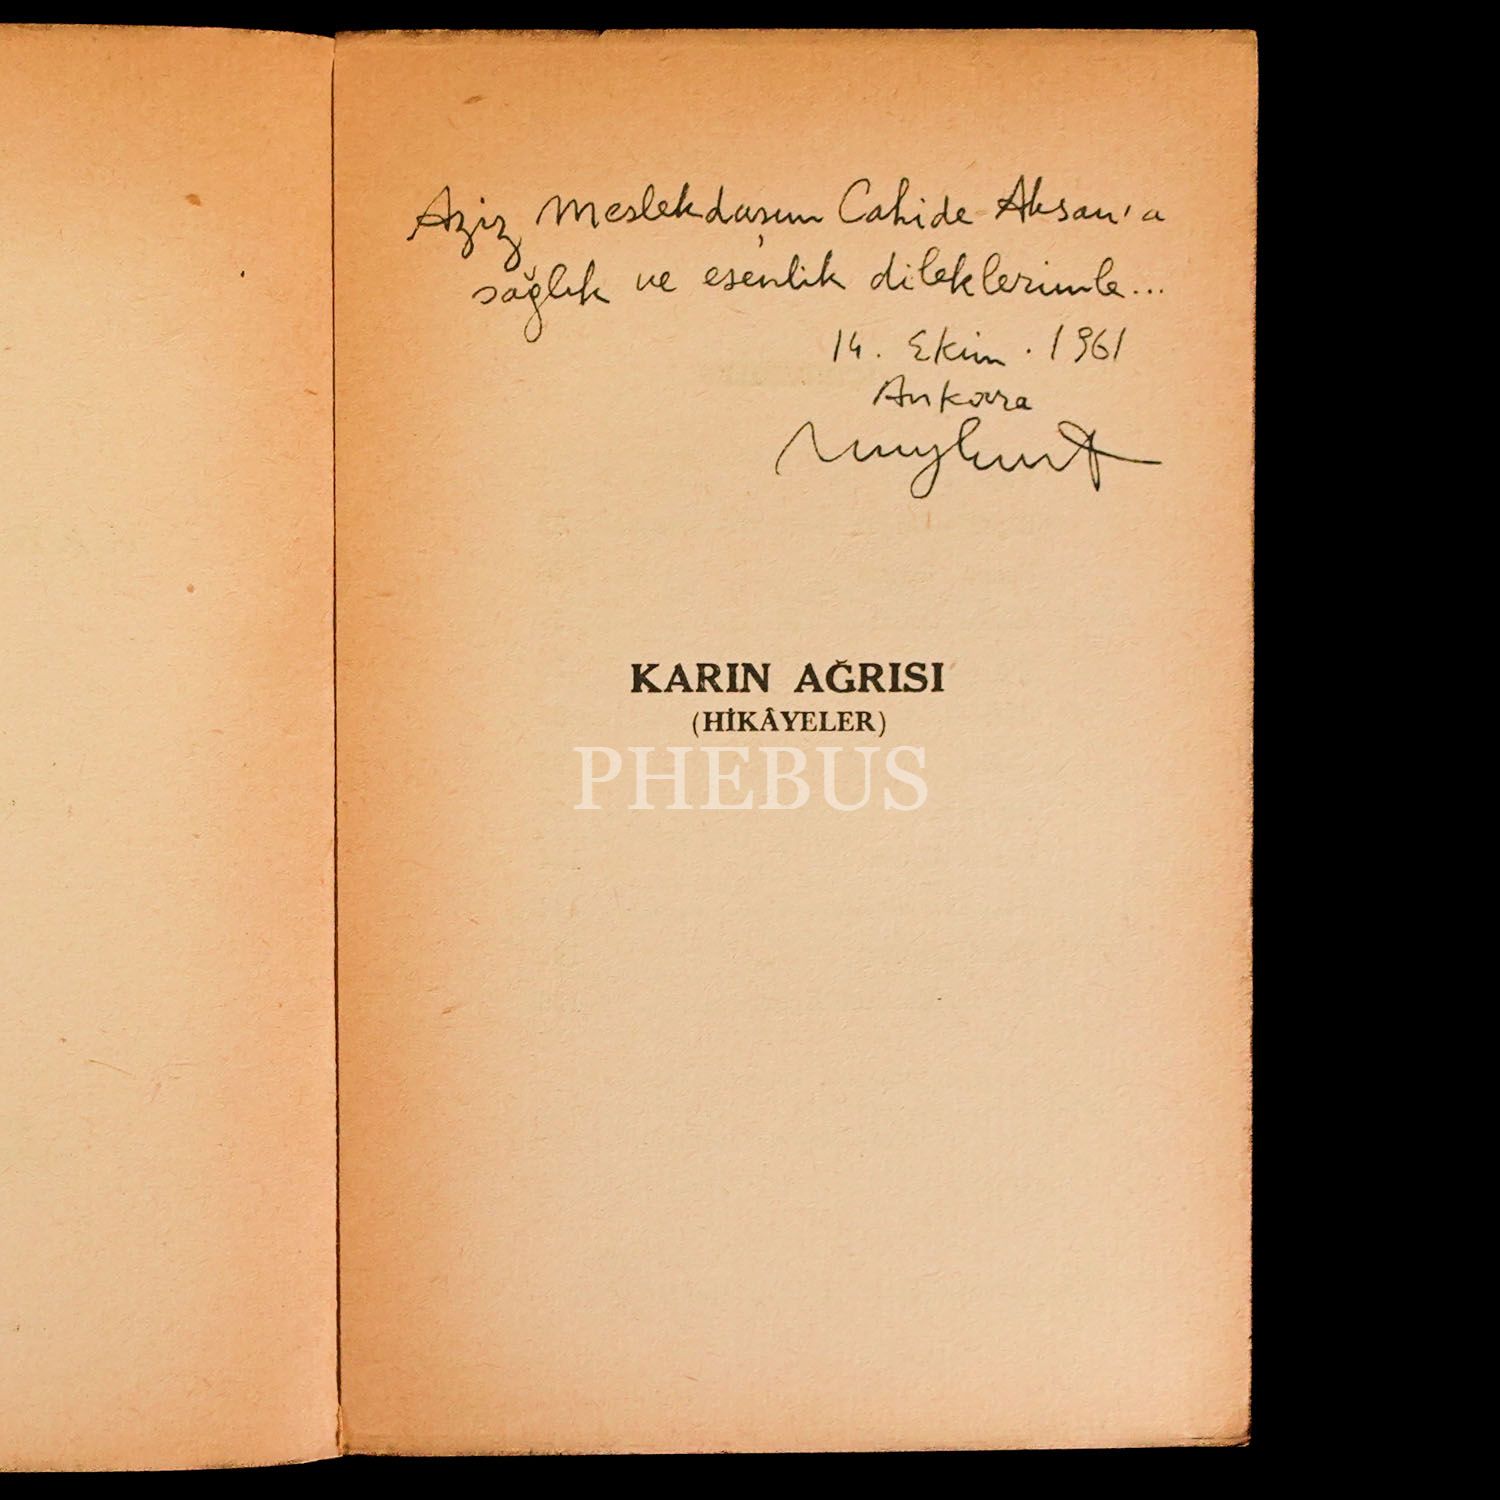 Aziz Meslekdaşım Cahide Aksan'a
sağlık ve esenlik dileklerimle...
14. Ekim. 1961
Ankara
KARIN AĞRISI
(HİKÂYELER)
PHEBUS